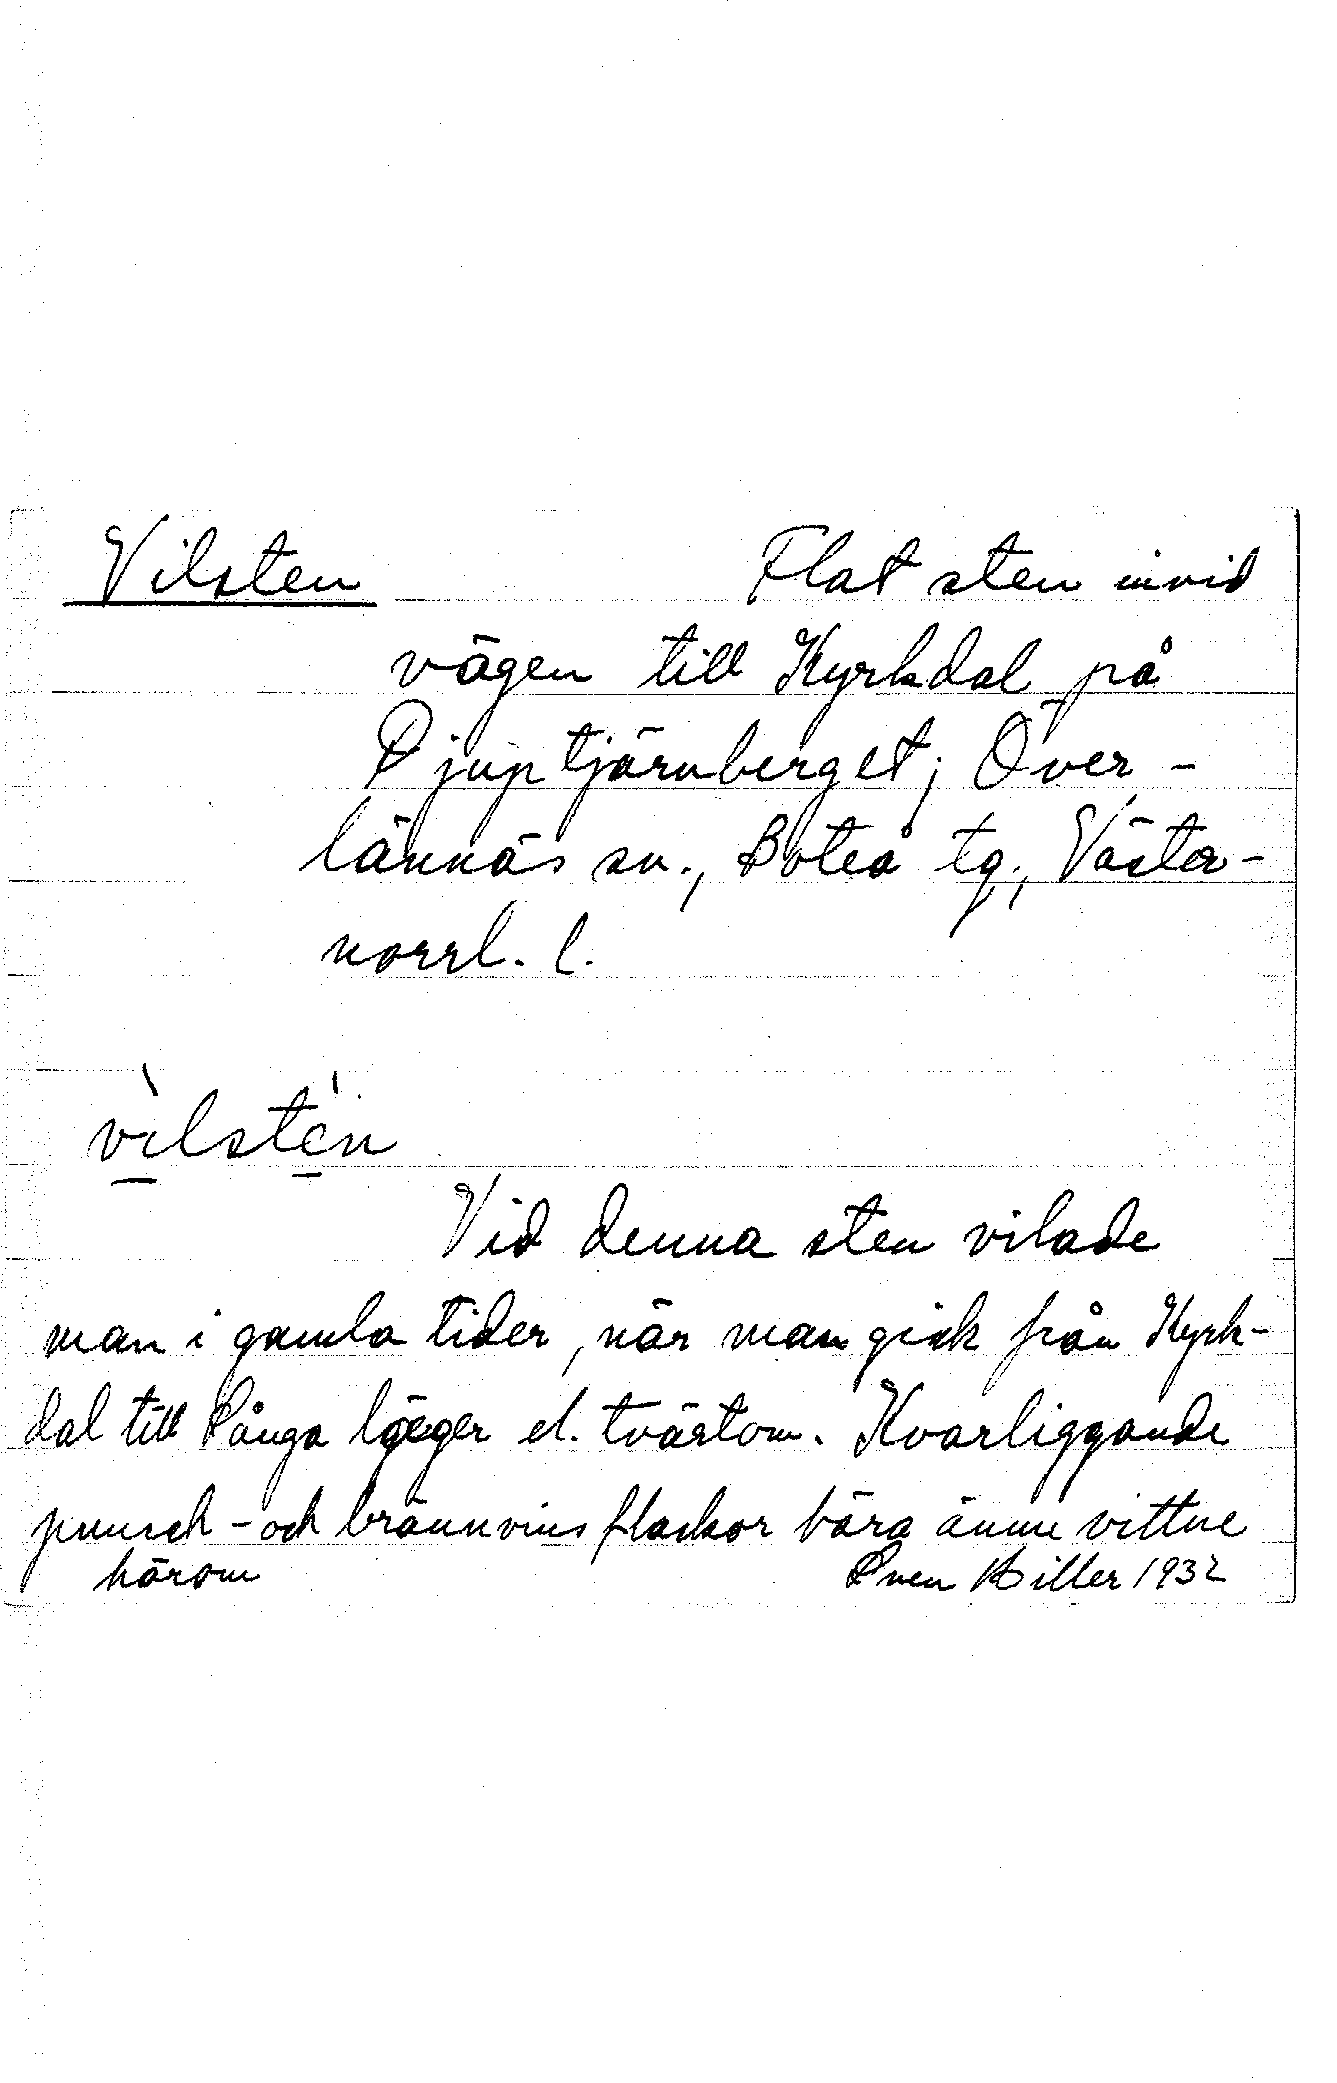 Vilsten Flat sten invid
vägen till Kyrkdal på
Djuptjärnberget; Över-
lännäs sn., Boteå tg., Väster-
norrl. l.
vìlstén
Vid denna sten vilade
man i gamla tider, när man gick från Kyrk-
dal till Sånga läger el. tvärtom. Kvarliggande
punsch- och brännvinsflaskor bära ännu vittne
härom Sven Biller 1932